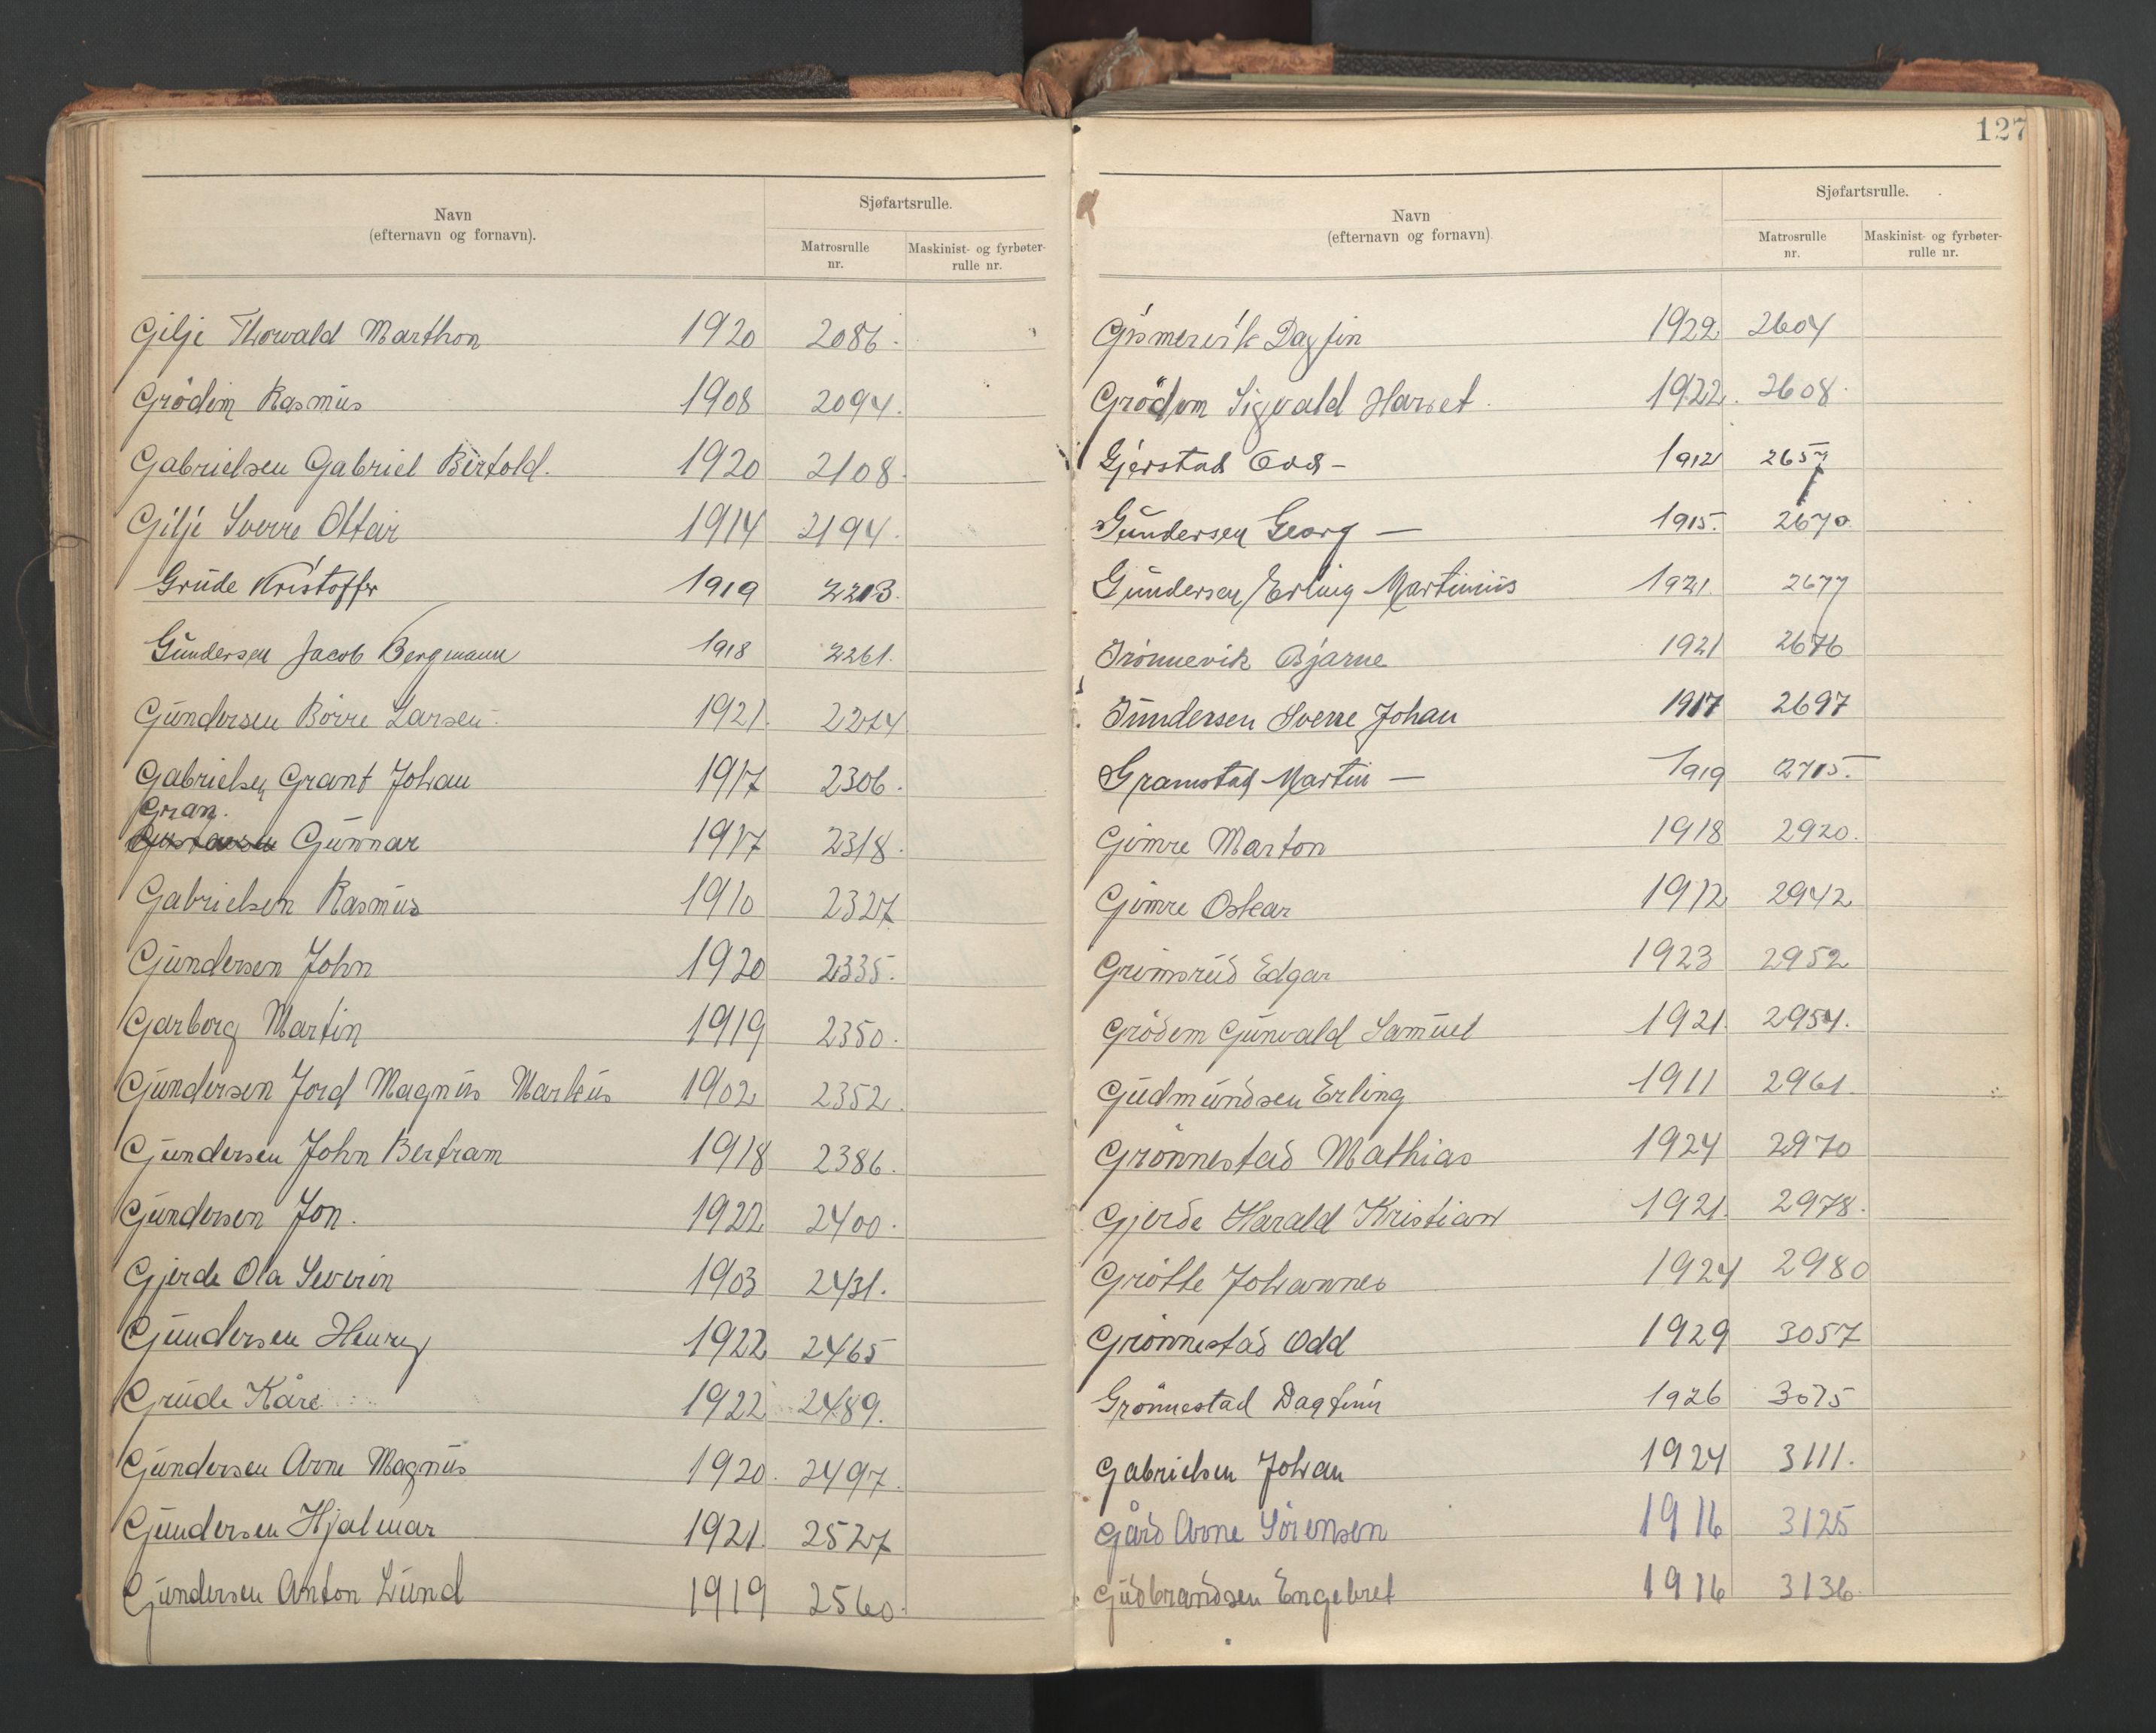 Navn
(efternavn og fornavn).
Sjøfartsrulle.
Matrosrulle
nr.
Maskinist- og fyrbøter-
rulle nr.
Gilje Thorvald Marthon 1920 2086.
Grödem Rasmus 1908 2094.
Gabrielsen Gabriel Bertold. 1920 2108.
Gilje Sverre Ottar 1914 2194.
Grude Kristoffer 1919 2213.
Gundersen Jacob Bergmann 1918 2261.
Gundersen Börre Larsen 1921. 2274
Gabrielsen Grant Johan 1917 2306.
Gran.
Gunnar 1917 2318.
Gabrielsen Rasmus 1910 2327
Gundersen John 1920 2335.
Garborg Martin 1919 2350.
Gundersen Jord Magnus Markus 1902 2352.
Gundersen John Bertram 1918 2386.
Gundersen Jon. 1922 2400.
Gjerde Ola Severin 1903 2431.
Gundersen Henry 1922 2465
Grude Kåre 1922 2489.
Gundersen Arne Magnus 1920. 2497.
Gundersen Hjalmar 1921. 2527
Gundersen Anton Lund 1919 2560.
127
Navn
(efternavn og fornavn)
Sjøfartsrulle.
Matrosrulle
nr.
Maskinist- og fyrbøter-
rulle nr.
Dagfin 1922 2604
Grödem Sigvald Harset. 1922. 2608.
Gjerstad Odd – 1912 2657
Gundersen Georg — 1915. 2670.
Gundersen Erling Martinius 1921. 2677
Grönnevik Bjarne 1921 2676
Gundersen Sverre Johan 1917 2697
Gramstad Martin — 1919 2715.
Gimre Marton 1918 2920.
Gimre Oskar 1912 2942
Grimsrud Edgar 1923 2952
Grödem Gunvald Samuel 1921. 2954.
Gudmundsen Erling 1911 2961.
Grönnestad Mathias 1924 2970
Gjerde Harald Kristian 1921. 2978.
Grötte Johannes 1924 2980
Grönnestad Odd 1929 3057
Grönnestad Dagfinn 1926 3075
Gabrielsen Johan 1924 3111.
Gård Arne Sörensen 1916 3125
Gudbrandsen Engebret 1916 3136.